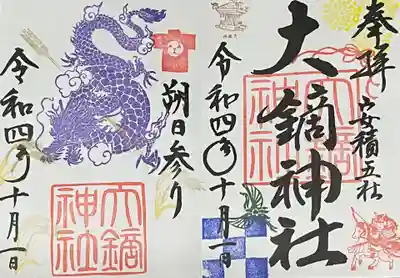 奉拝
安積五社
大鏑神社
令和四年十月一日
大鏑神社
朔日参り
令和四年十月一日
大鏑神社